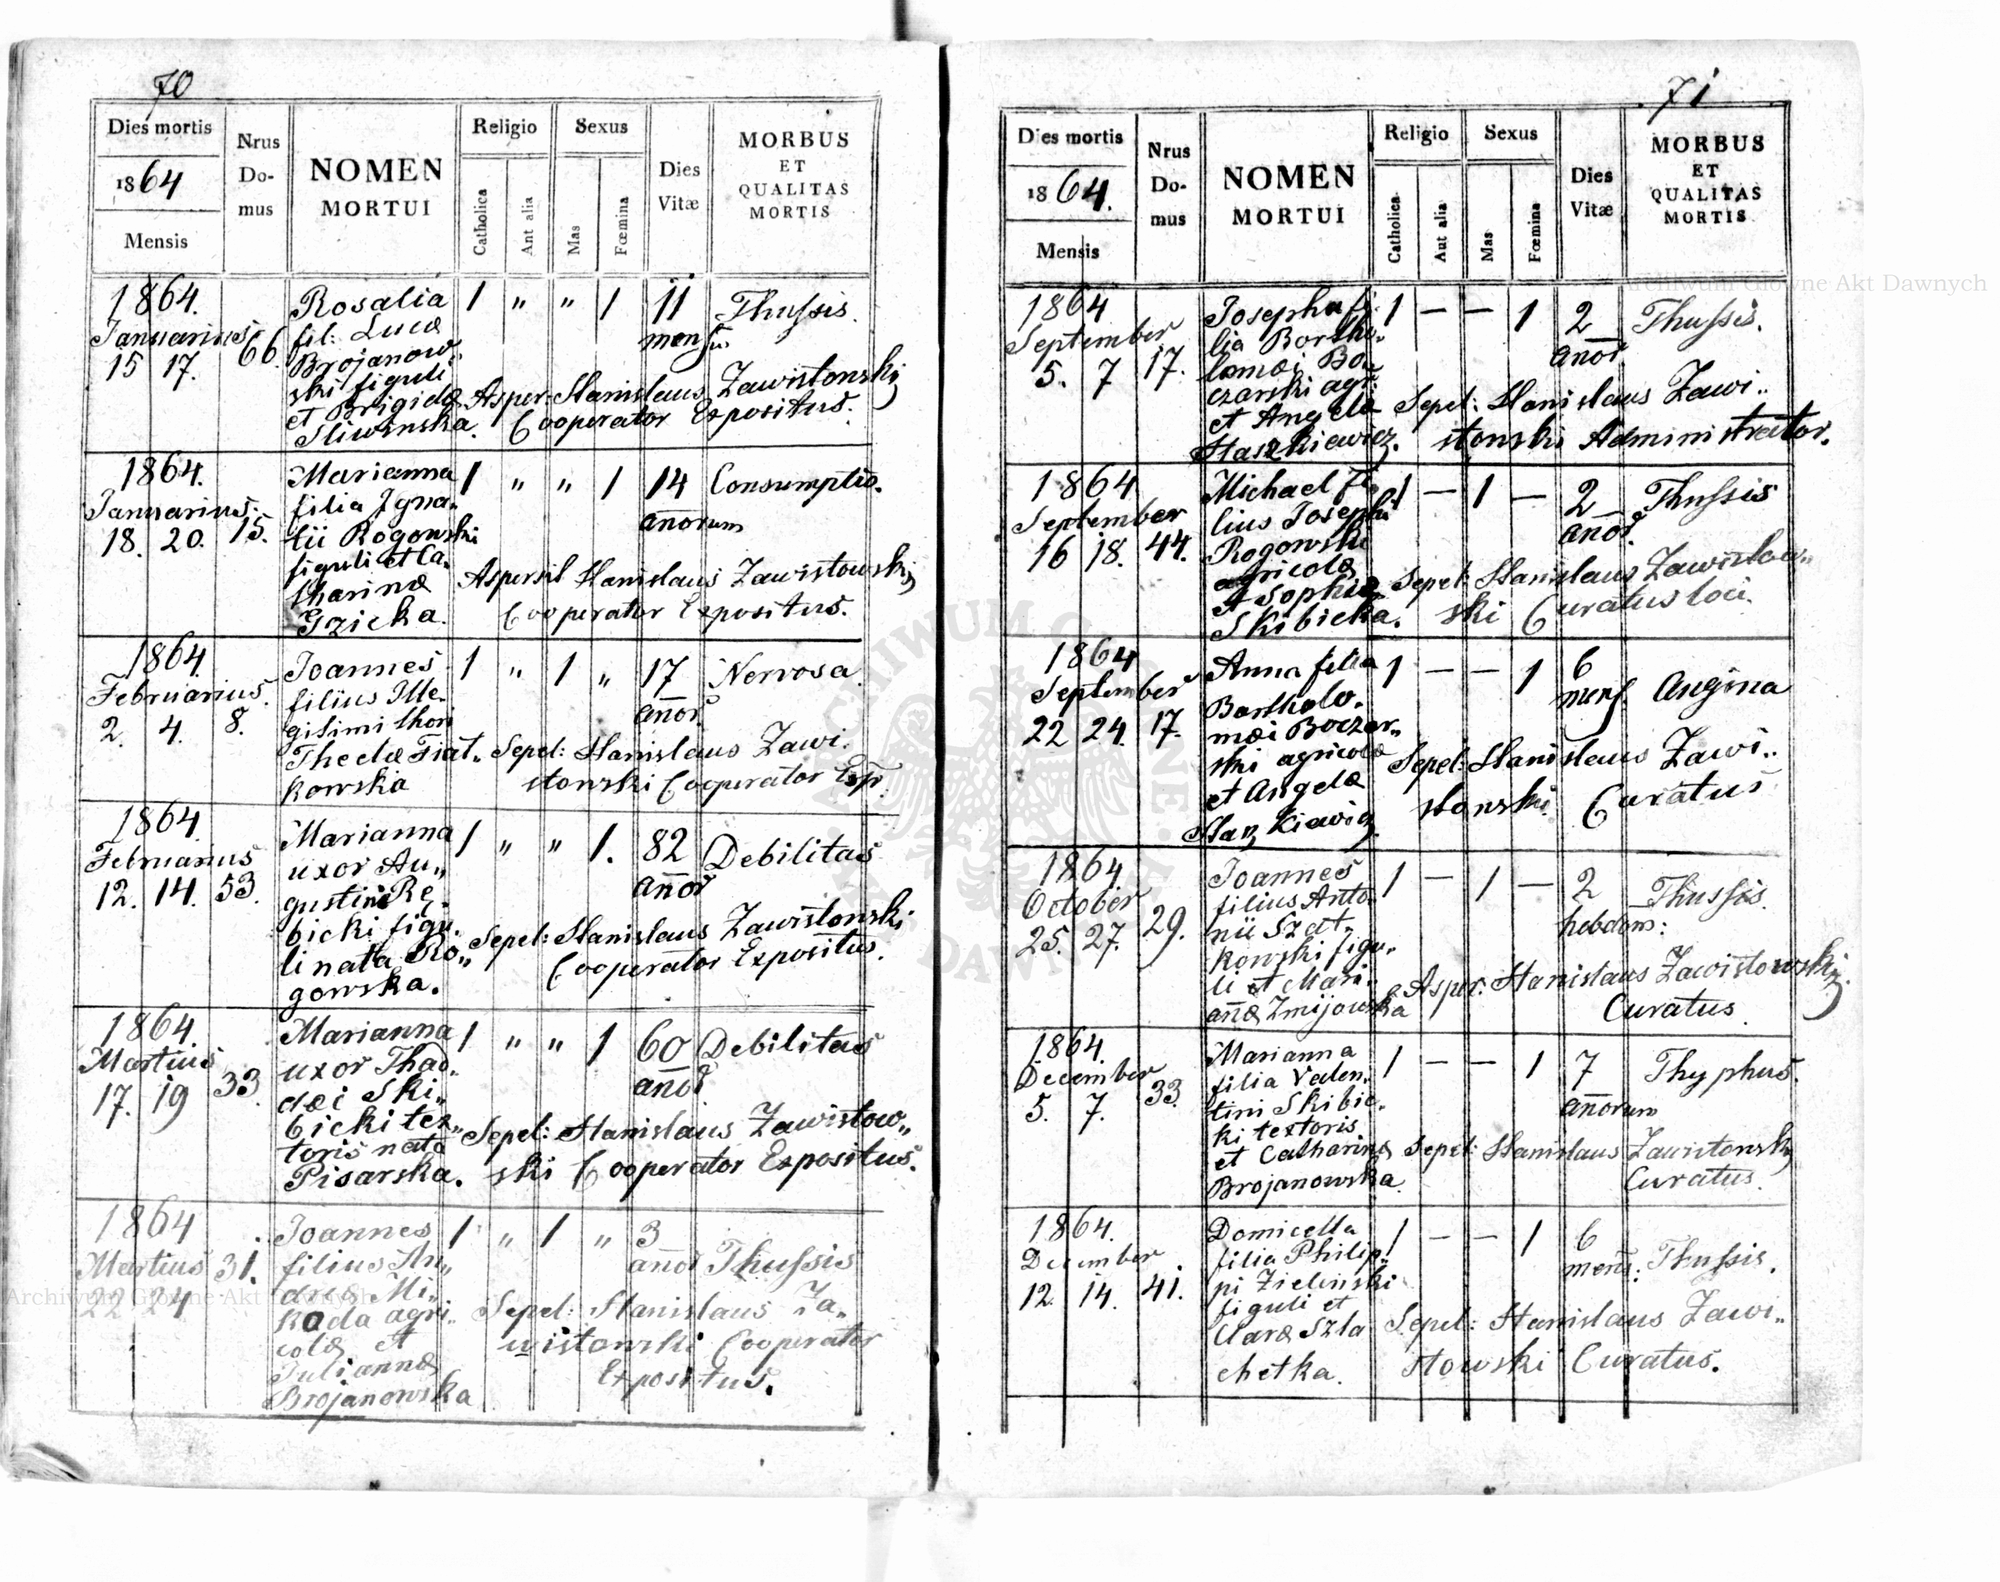 70
Dies mortis
1864
Mensis
Nrus
Do-
mus
NOMEN
MORTUI
Religio
Catholica
Aut alia
Sexus
Mas
Fœmina
Dies
Vitæ
MORBUS
ET
QUALITAS
MORTIS
1864.
Januarius
15 17. 66.
Rosalia
fil: Lucæ
Brojanow..
ski figuli
et Brigidæ
Sliwinska.
1 " " 1 11
mensium
Thussis.
Asper: Stanislaus Zawistowski
Cooperator Expositus.
1864.
Januarius.
18. 20. 15.
Marianna
filia Igna..
tii Rogowski
figuli et Ca..
tharinæ
Gzicka.
1 " " 1 14
añorum
Consumptio.
Aspersit Stanislaus Zawistowski
Cooperator Expositus.
1864.
Februarius.
2. 4. 8.
Joannes
filius Ille-
gitimi thori
Theclæ Fiat..
kowska
1 " 1 " 17
añor.
Nervosa.
Sepel: Stanislaus Zawi.
stowski Cooperator Exp.
1864.
Februarius
12. 14. 53.
Marianna
uxor Au..
gustini Rę-
bicki figu.
li nata Ro..
gowska.
1 " " 1. 82
añor
Debilitas
Sepel: Stanislaus Zawistowski
Cooperator Expositus.
1864.
Martius
17. 19 33.
Marianna
uxor Thad.
dæi Ski..
bicki tex..
toris nata
Pisarska.
1 " " 1 60
añor
Debilitas
Sepel: Stanislaus Zawistow..
ski Cooperator Expositus.
1864
Martius 31.
22 24
Joannes
filius An..
dreæ Mi..
koda agri..
colæ et
Juliannæ
Brojanowska
1 " 1 " 3
añor
Thussis
Sepel: Stanislaus Za..
wistowski Cooperator
Expositus.
71
Dies mortis
1864.
Mensis
Nrus
Do-
mus
NOMEN
MORTUI
Religio
Catholica
Aut alia
Sexus
Mas
Fœmina
Dies
Vitæ
MORBUS
ET
QUALITAS
MORTIS
1864
September
5. 7 17.
Josepha fi.
lia Bartho.
lomæi Bo..
czarski agr:
et Angelæ
Staszkiewicz.
1 — — 1 2
añor
Thussis.
Sepel: Stanislaus Zawi..
stowski Administrator.
1864
September
16 18. 44.
Michael fi.
lius Josephi
Rogowski
agricolæ
et Sophiæ
Skibicka.
1 — 1 — 2
añor.
Thussis
Sepel: Stanislaus Zawistow..
ski Curatus loci.
1864
September
22 24. 17.
Anna filia
Bartholo.
mæi Boczar..
ski agricolæ
et Angelæ
Staszkiewicz.
1 — — 1 6
mens.
Angina
Sepel: Stanislaus Zawi..
stowski. Curatus
1864.
October
25. 27. 29.
Joannes
filius Anto..
nii Szat..
kowski figu..
li et Mari..
añæ Zmijowska
1 — 1 — 2
hebdom:
Thussis.
Asper: Stanislaus Zawistowski
Curatus.
1864.
December
5. 7. 33
Marianna
filia Valen..
tini Skibic..
ki textoris
et Catharinæ
Brojanowska.
1 — — 1 7
añorum
Thyphus.
Sepel: Stanislaus Zawistowski
Curatus.
1864.
December
12. 14. 41.
Domicella
filia Philip..
pi Zielinski
figuli et
Claræ Szla
chetka.
1 — — 1 6
mens:
Thussis.
Sepel: Stanislaus Zawi..
stowski Curatus.
Archiwum Główne Akt Dawnych
Archiwum Główne Akt Dawnych
ARCHIWUM GŁÓWNE AKT DAWNYCH